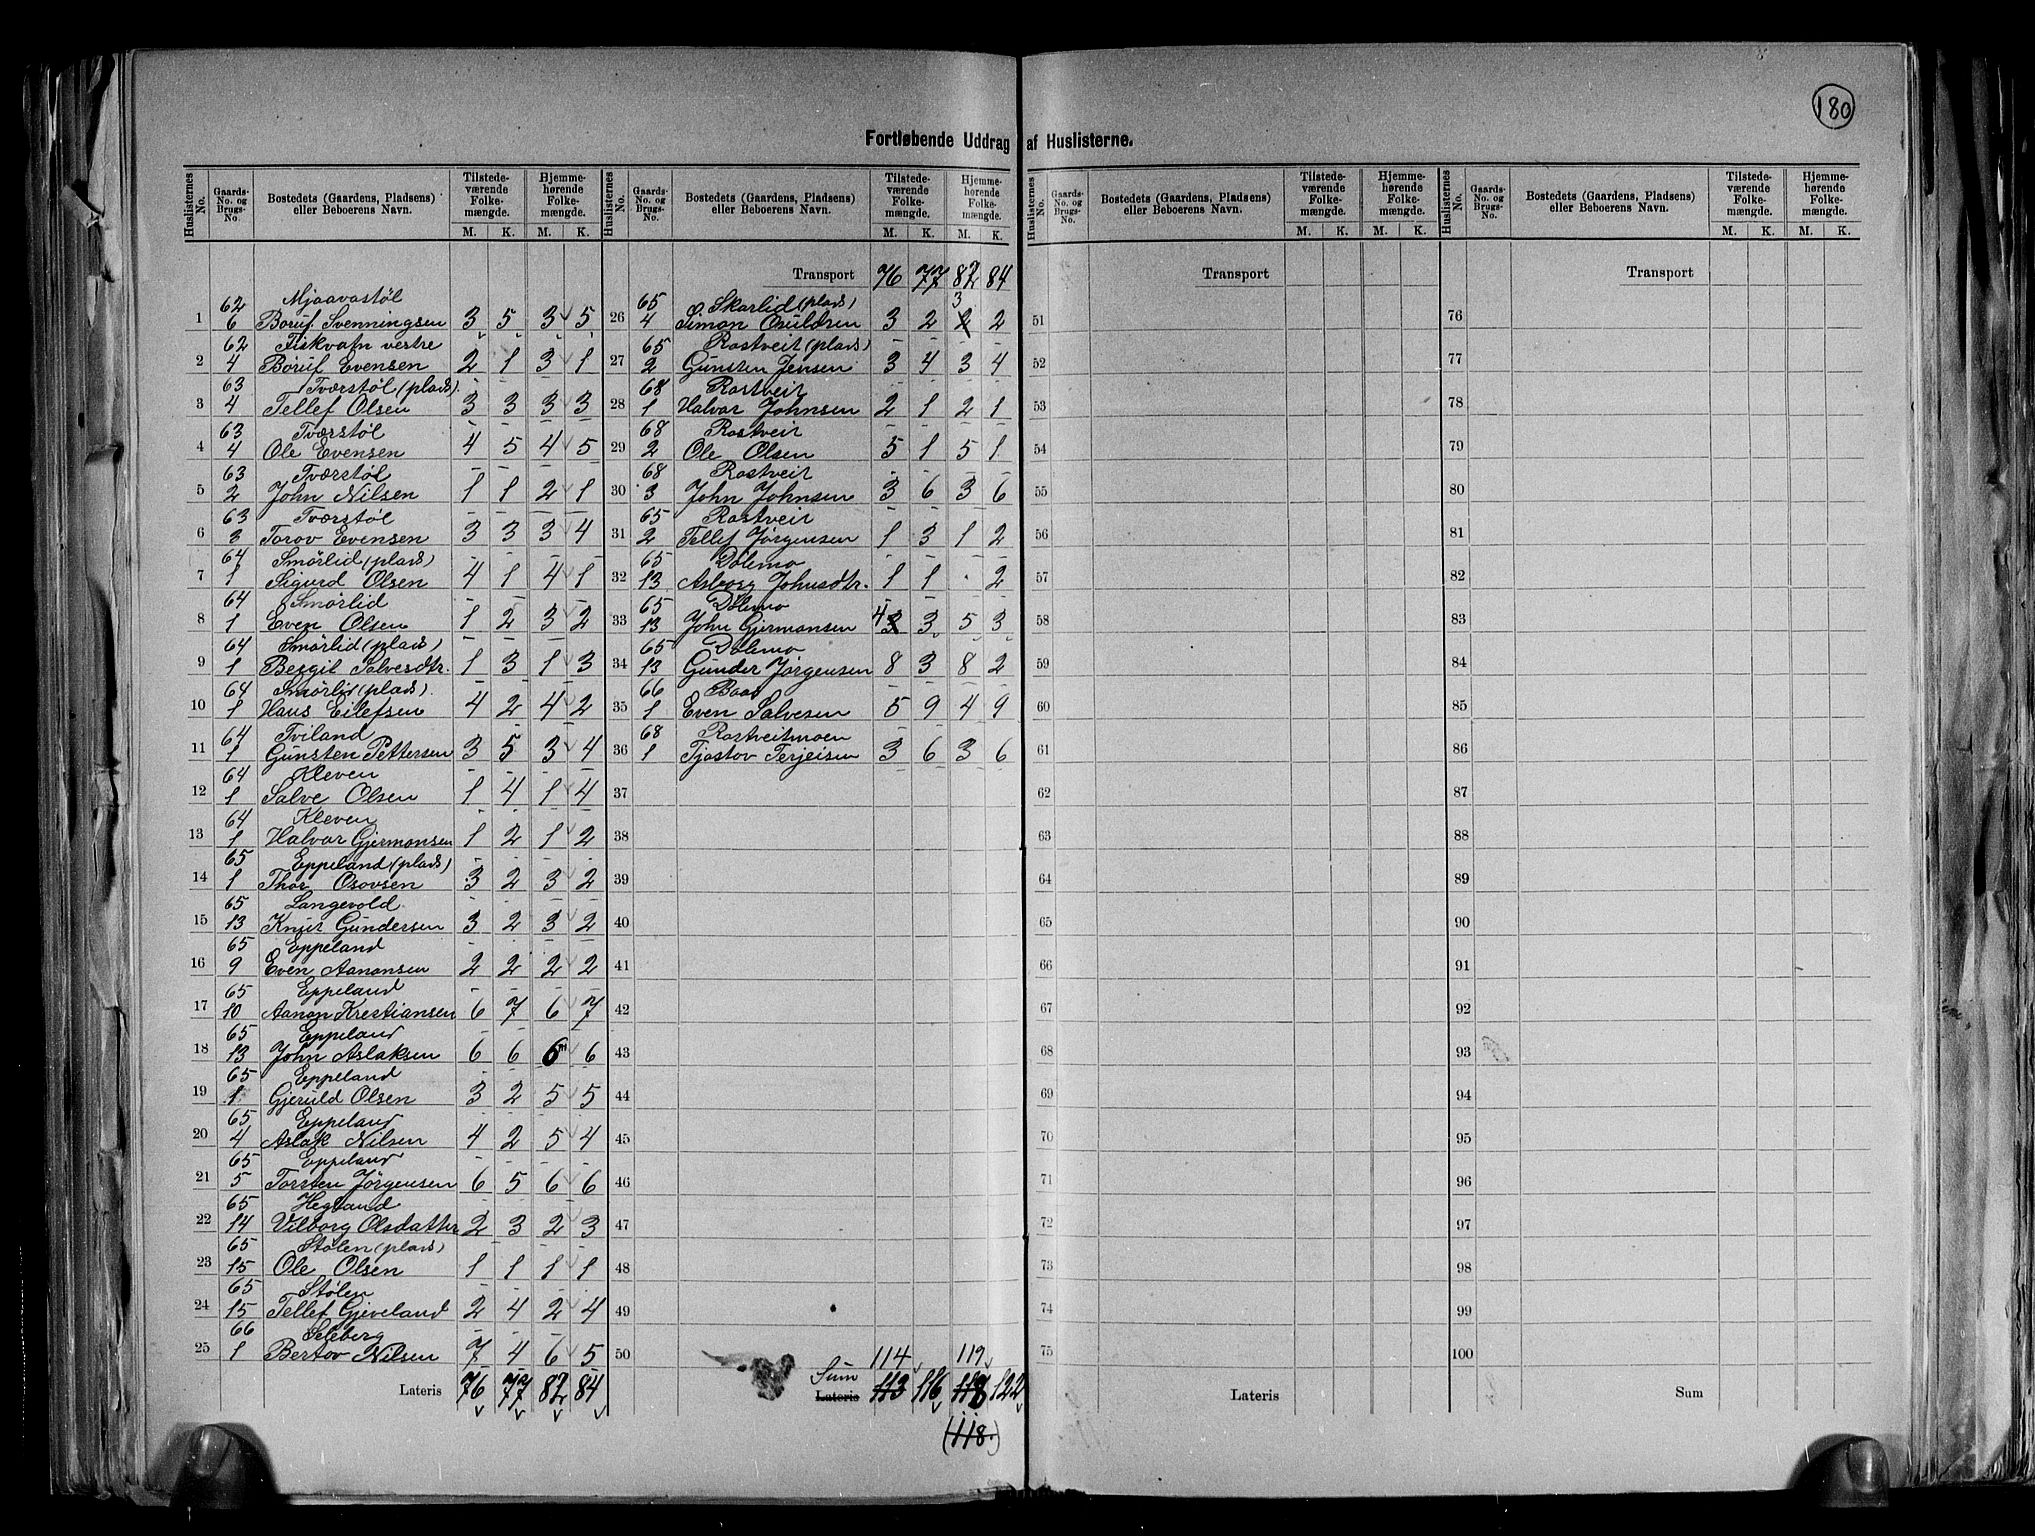 180
Fortløbende Uddrag af Huslisterne.
Huslisternes No. Gaards-No. og Brugs-No. Bostedets (Gaardens, Pladsens) eller Beboerens Navn. Tilstedeværende Folkemængde. M. K. Hjemmehørende Folkemængde. M. K.
62 Mjaavastøl
1 6 Boruf Svenningsen 3 5 3 5
62 Fiskvatn vestre
2 4 Boruf Evensen 2 1 3 1
63 Tværstøl (plads)
3 4 Tellef Olsen 3 3 3 3
63 Tværstøl
4 4 Ole Evensen 4 5 4 5
63 Tværstøl
5 2 John Nilsen 1 1 2 1
63 Tværstøl
6 3 Torov Evensen 3 3 3 4
64 Smørlid (plads)
7 1 Sigurd Olsen 4 1 4 1
64 Smørlid
8 1 Even Olsen 1 2 3 2
64 Smørlid (plads)
9 1 Bergit Salvesdtr. 1 3 1 3
64 Smørlid (plads).
10 1 Hans Eilefsen 4 2 4 2
64 Tviland
11 1 Gunsten Pettersen 3 5 3 4
64 Kleven
12 1 Salve Olsen 1 4 1 4
64 Kleven
13 1 Halvor Gjermonsen 1 2 1 2
65 Eppeland (plads)
14 1 Thor Osovsen 3 2 3 2
65 Langevold
15 13 Knut Gundersen 3 2 3 2
65 Eppeland
16 9 Even Aanonsen 2 2 2 2
65 Eppeland
17 10 Aanon Kristiansen 6 7 6 7
65 Eppeland
18 13 John Aslaksen 6 6 6 6
65 Eppeland
19 1 Gjeruld Olsen 3 2 5 5
65 Eppeland
20 4 Aslak Nilsen 4 2 5 4
65 Eppeland
21 5 Torsten Jørgensen 6 5 6 6
65 Hegland
22 14 Vilborg Olsdatter 2 3 2 3
65 Stølen (plads)
23 15 Ole Olsen 1 1 1 1
65 Stølen
24 15 Tellef Gjeveland 2 4 2 4
66 Seleberg
25 1 Bertov Nilsen 7 4 6 5
Lateris 76 77 82 84
Huslisternes No. Gaards-No. og Brugs-No. Bostedets (Gaardens, Pladsens) eller Beboerens Navn. Tilstedeværende Folkemængde. M. K. Hjemmehørende Folkemængde. M. K.
Transport 76 77 82 84
65 Skarlid (plads) 3
26 4 Simon Osuldsen 3 2 2 2
65 Rostveit (plads)
27 2 Gunsten Jensen 3 4 3 4
68 Rostveit
28 1 Halvor Johnsen 2 1 2 1
68 Rostveit
29 2 Ole Olsen 5 1 5 1
68 Rostveit
30 3 John Johnsen 3 6 3 6
65 Rostveit
31 2 Tellef Jørgensen 1 3 1 2
65 Dølemo
32 13 Asborg Johnsdtr. 1 1 · 2
65 Dølemo
33 13 John Gjermonsen 4 3 3 5 3
65 Dølemo
34 13 Gunder Jørgensen 8 3 8 2
66 Baas
35 1 Even Salvesen 5 9 4 9
68 Rostveitmoen
36 1 Tjostov Terjeisen 3 6 3 6
37
38
39
40
41
42
43
44
45
46
47
48
49
50
114 119
Sum
Lateris 113 116 118 122
(118.)
Huslisternes No. Gaards-No. og Brugs-No. Bostedets (Gaardens, Pladsens) eller Beboerens Navn. Tilstedeværende Folkemængde. M. K. Hjemmehørende Folkemængde. M. K.
Transport
51
52
53
54
55
56
57
58
59
60
61
62
63
64
65
66
67
68
69
70
71
72
73
74
75
Lateris
Huslisternes No. Gaards-No. og Brugs-No. Bostedets (Gaardens, Pladsens) eller Beboerens Navn. Tilstedeværende Folkemængde. M. K. Hjemmehørende Folkemængde. M. K.
Transport
76
77
78
79
80
81
82
83
84
85
86
87
88
89
90
91
92
93
94
95
96
97
98
99
100
Sum